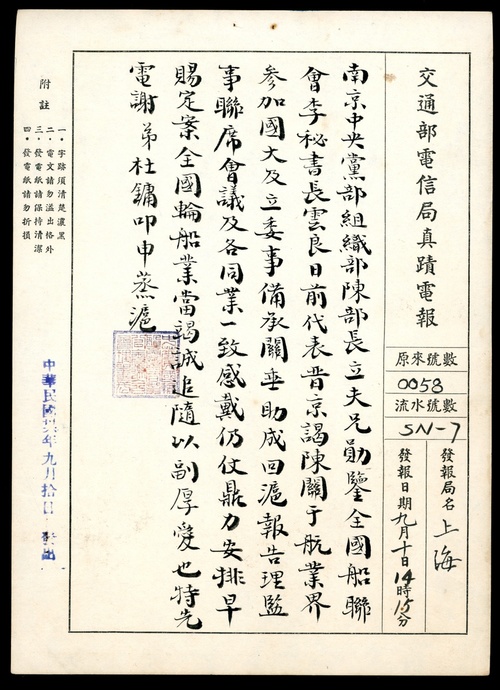 交通部電信局真蹟電報
原來號數
0058
流水號數
SN-7
發報局名 上海
發報日期 九月十日14時15分
南京中央黨部組織部陳部長立夫兄勛鑒全國船聯
會李秘書長雲良日前代表晋京謁陳關于航業界
參加國大及立委事備承關垂助成回滬報告理監
事聯席會議及各同業一致感戴仍仗鼎力安排早
賜定案全國輪船業當竭誠追隨以副厚愛也特先
電謝弟杜鏞叩申蒸滬
附註
一・字跡須清楚濃黑
二・電文請勿溢出格外
三・發電紙請保持清潔
四・發電紙請勿折損
中華民國卅六年九月拾日 發出